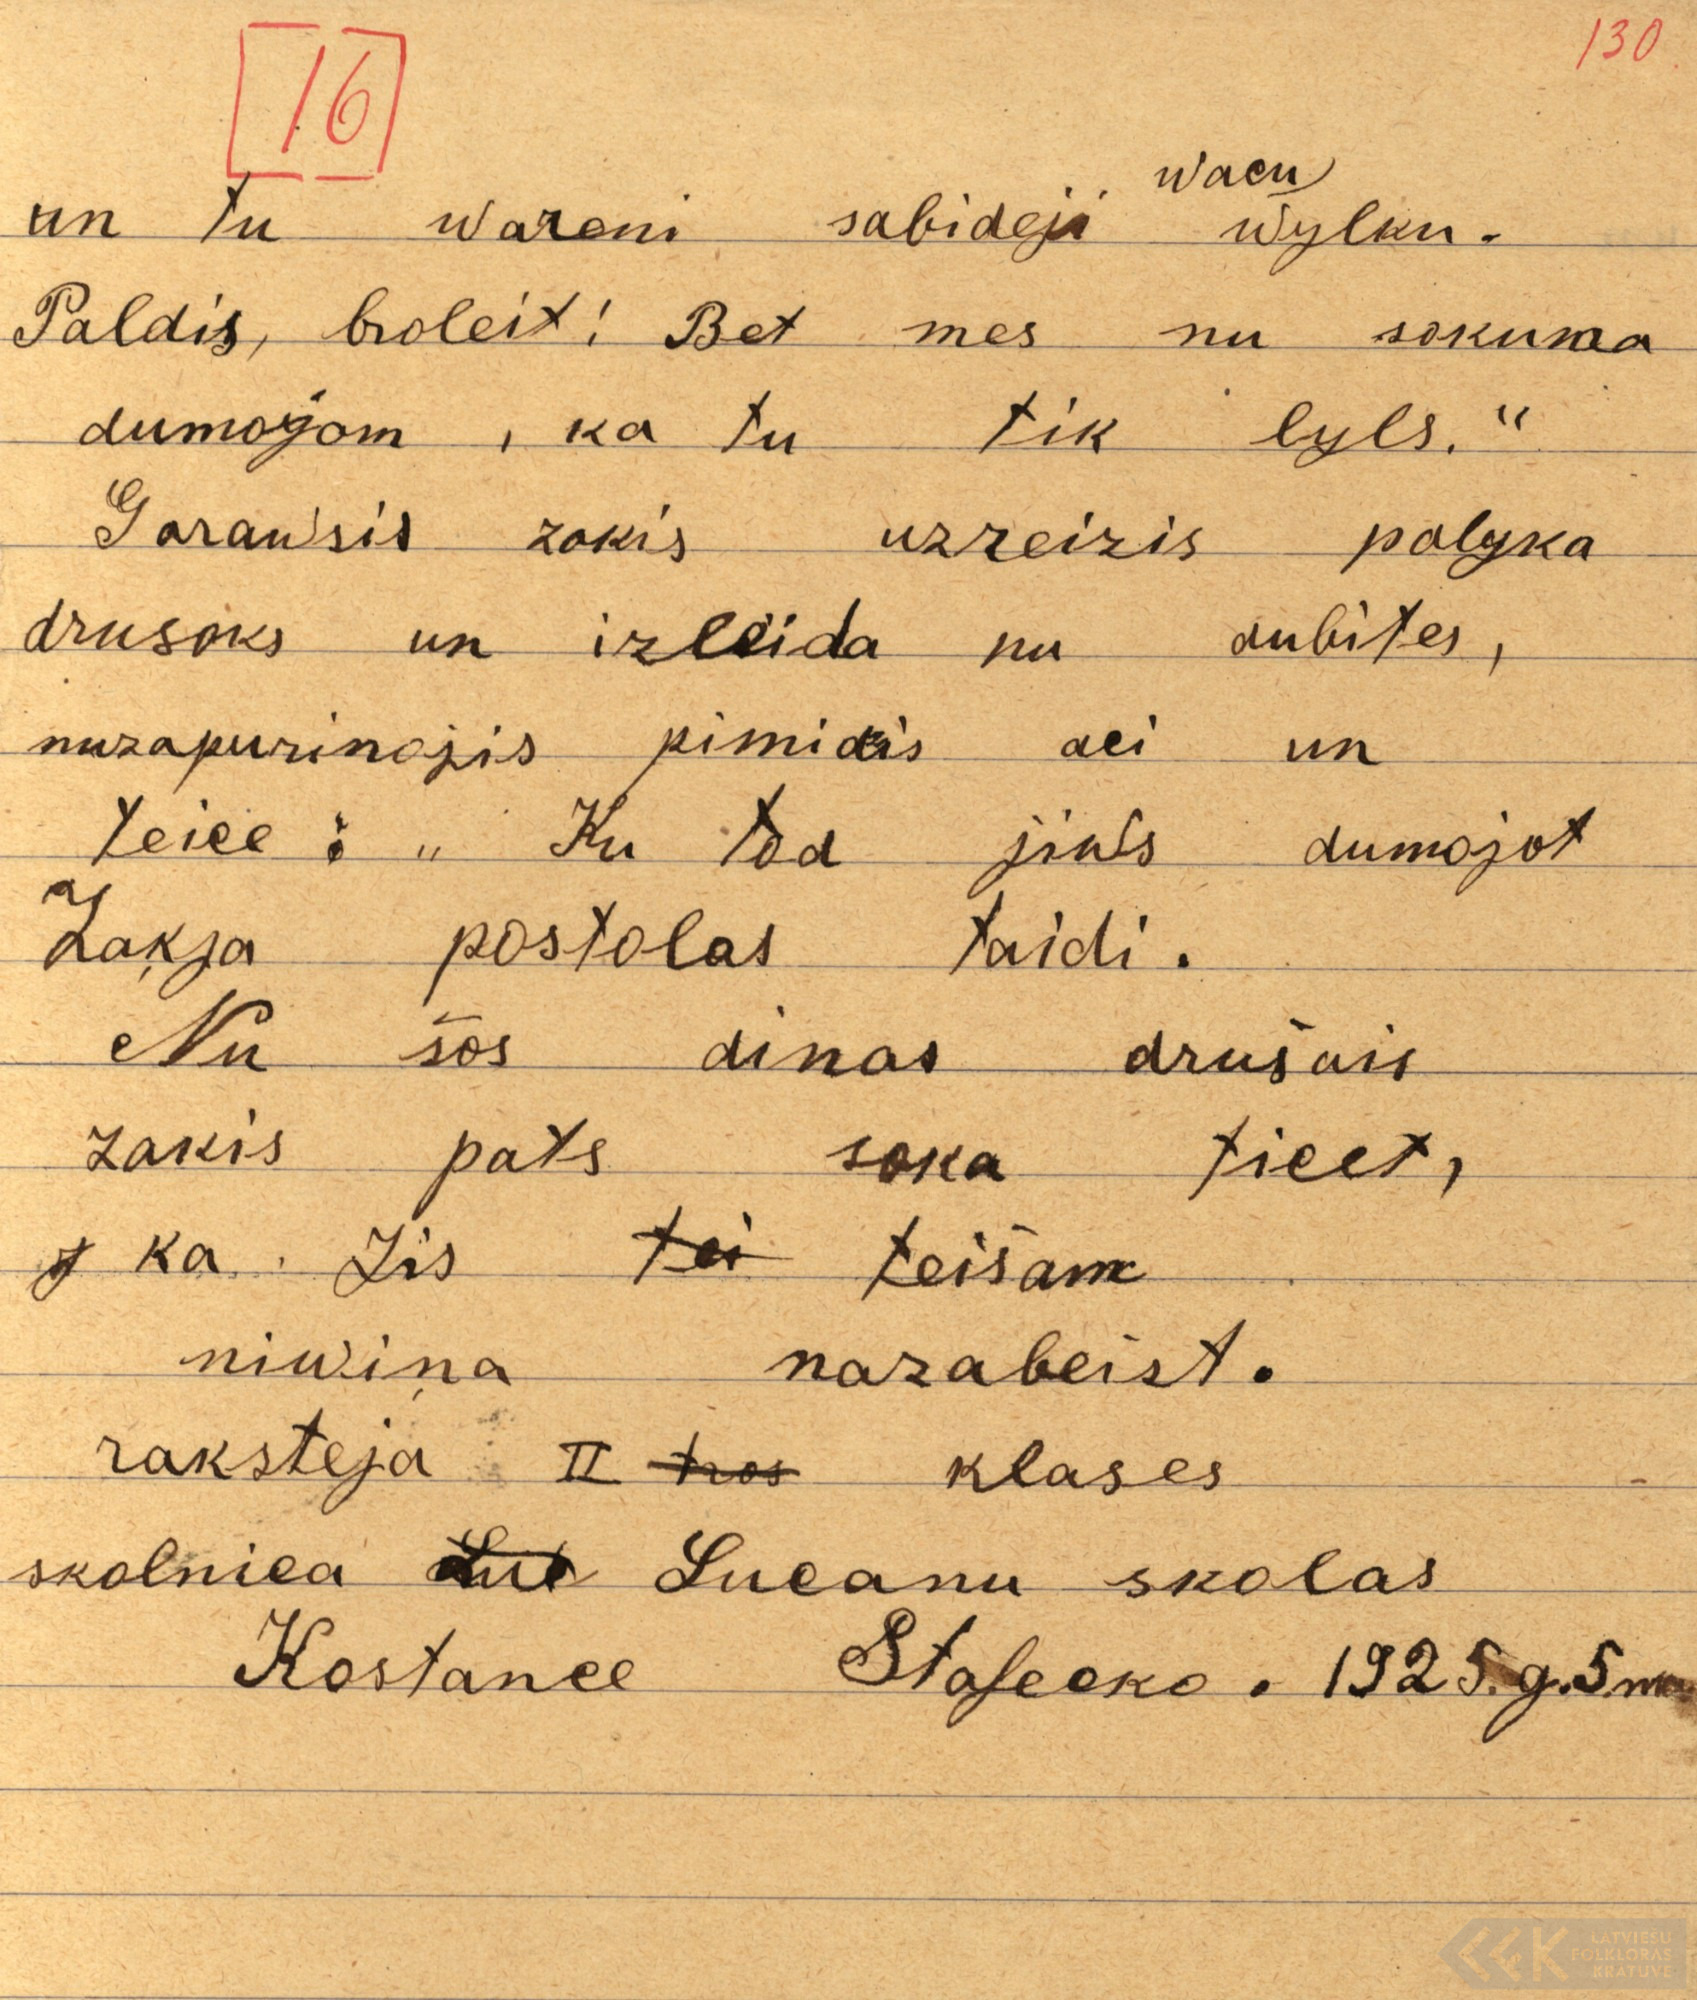 16
130
wacu
un tu wareni sabideji wylku.
Paldis, broleit! Bet mes nu sokuma
dumojom, ka tu tik lyls."
Garausis zokis uzreizis palyka
drusoks un izleida nu aubites,
nuzapurinojis pimidis aci un
teice: „Ku tod jius dumojot
Zaķja postolas taidi.
Nu šos dinas drušais
zakis pats soka ticet,
ka Jis tei teišam
niwiņa nazabeist.
raksteja II tros klases
skolnica Luc Lucanu skolas
Kostance Stafecko. 1925. g. 5. m
LATVIEŠU
FOLKLORAS
KRĀTUVE